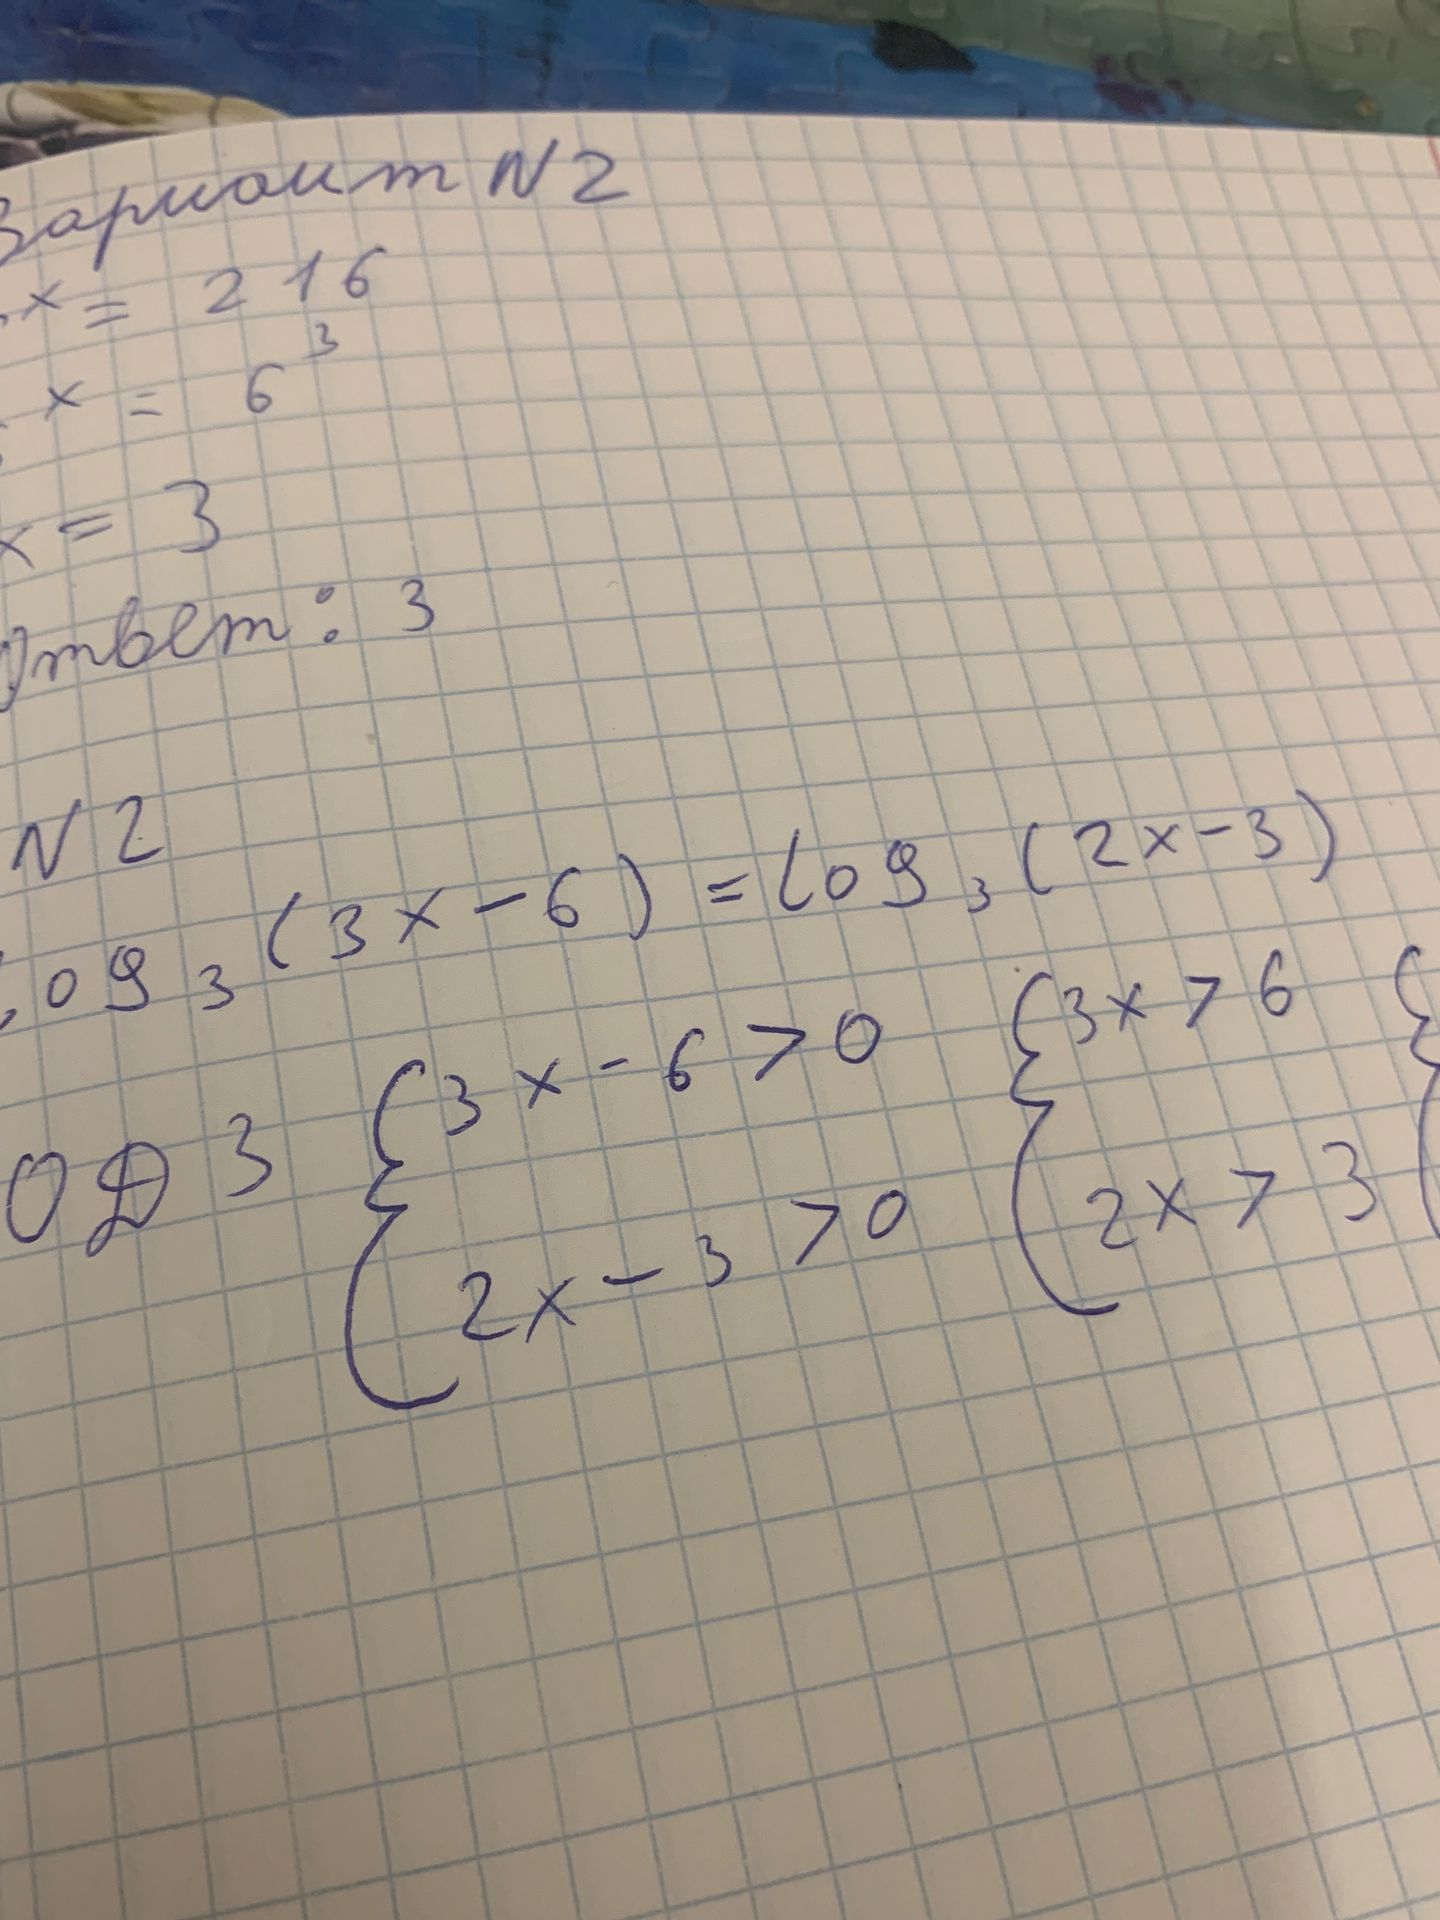 Вариант N2
x = 216
x = 6³
x = 3
Ответ: 3
N2
log₃(3x-6) = log₃(2x-3)
ОДЗ { 3x-6>0 { 3x>6 {
2x-3>0 2x>3